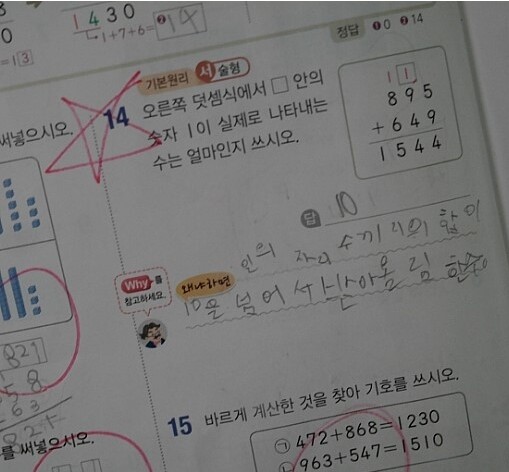 1430
1+7+6=
❷14
정답 ❶0 ❷14
=1 3
기본원리 서술형
14 오른쪽 덧셈식에서 □ 안의
숫자 1이 실제로 나타내는
수는 얼마인지 쓰시오.
1 1
895
+ 649
1544
답 10
Why를
참고하세요.
왜냐하면
인의 자리 수끼리의 합이
10을 넘어서 받아올림 한수
써넣으시오.
821
를 써넣으시오.
15 바르게 계산한 것을 찾아 기호를 쓰시오.
㉠ 472+868=1230
963+547=1510